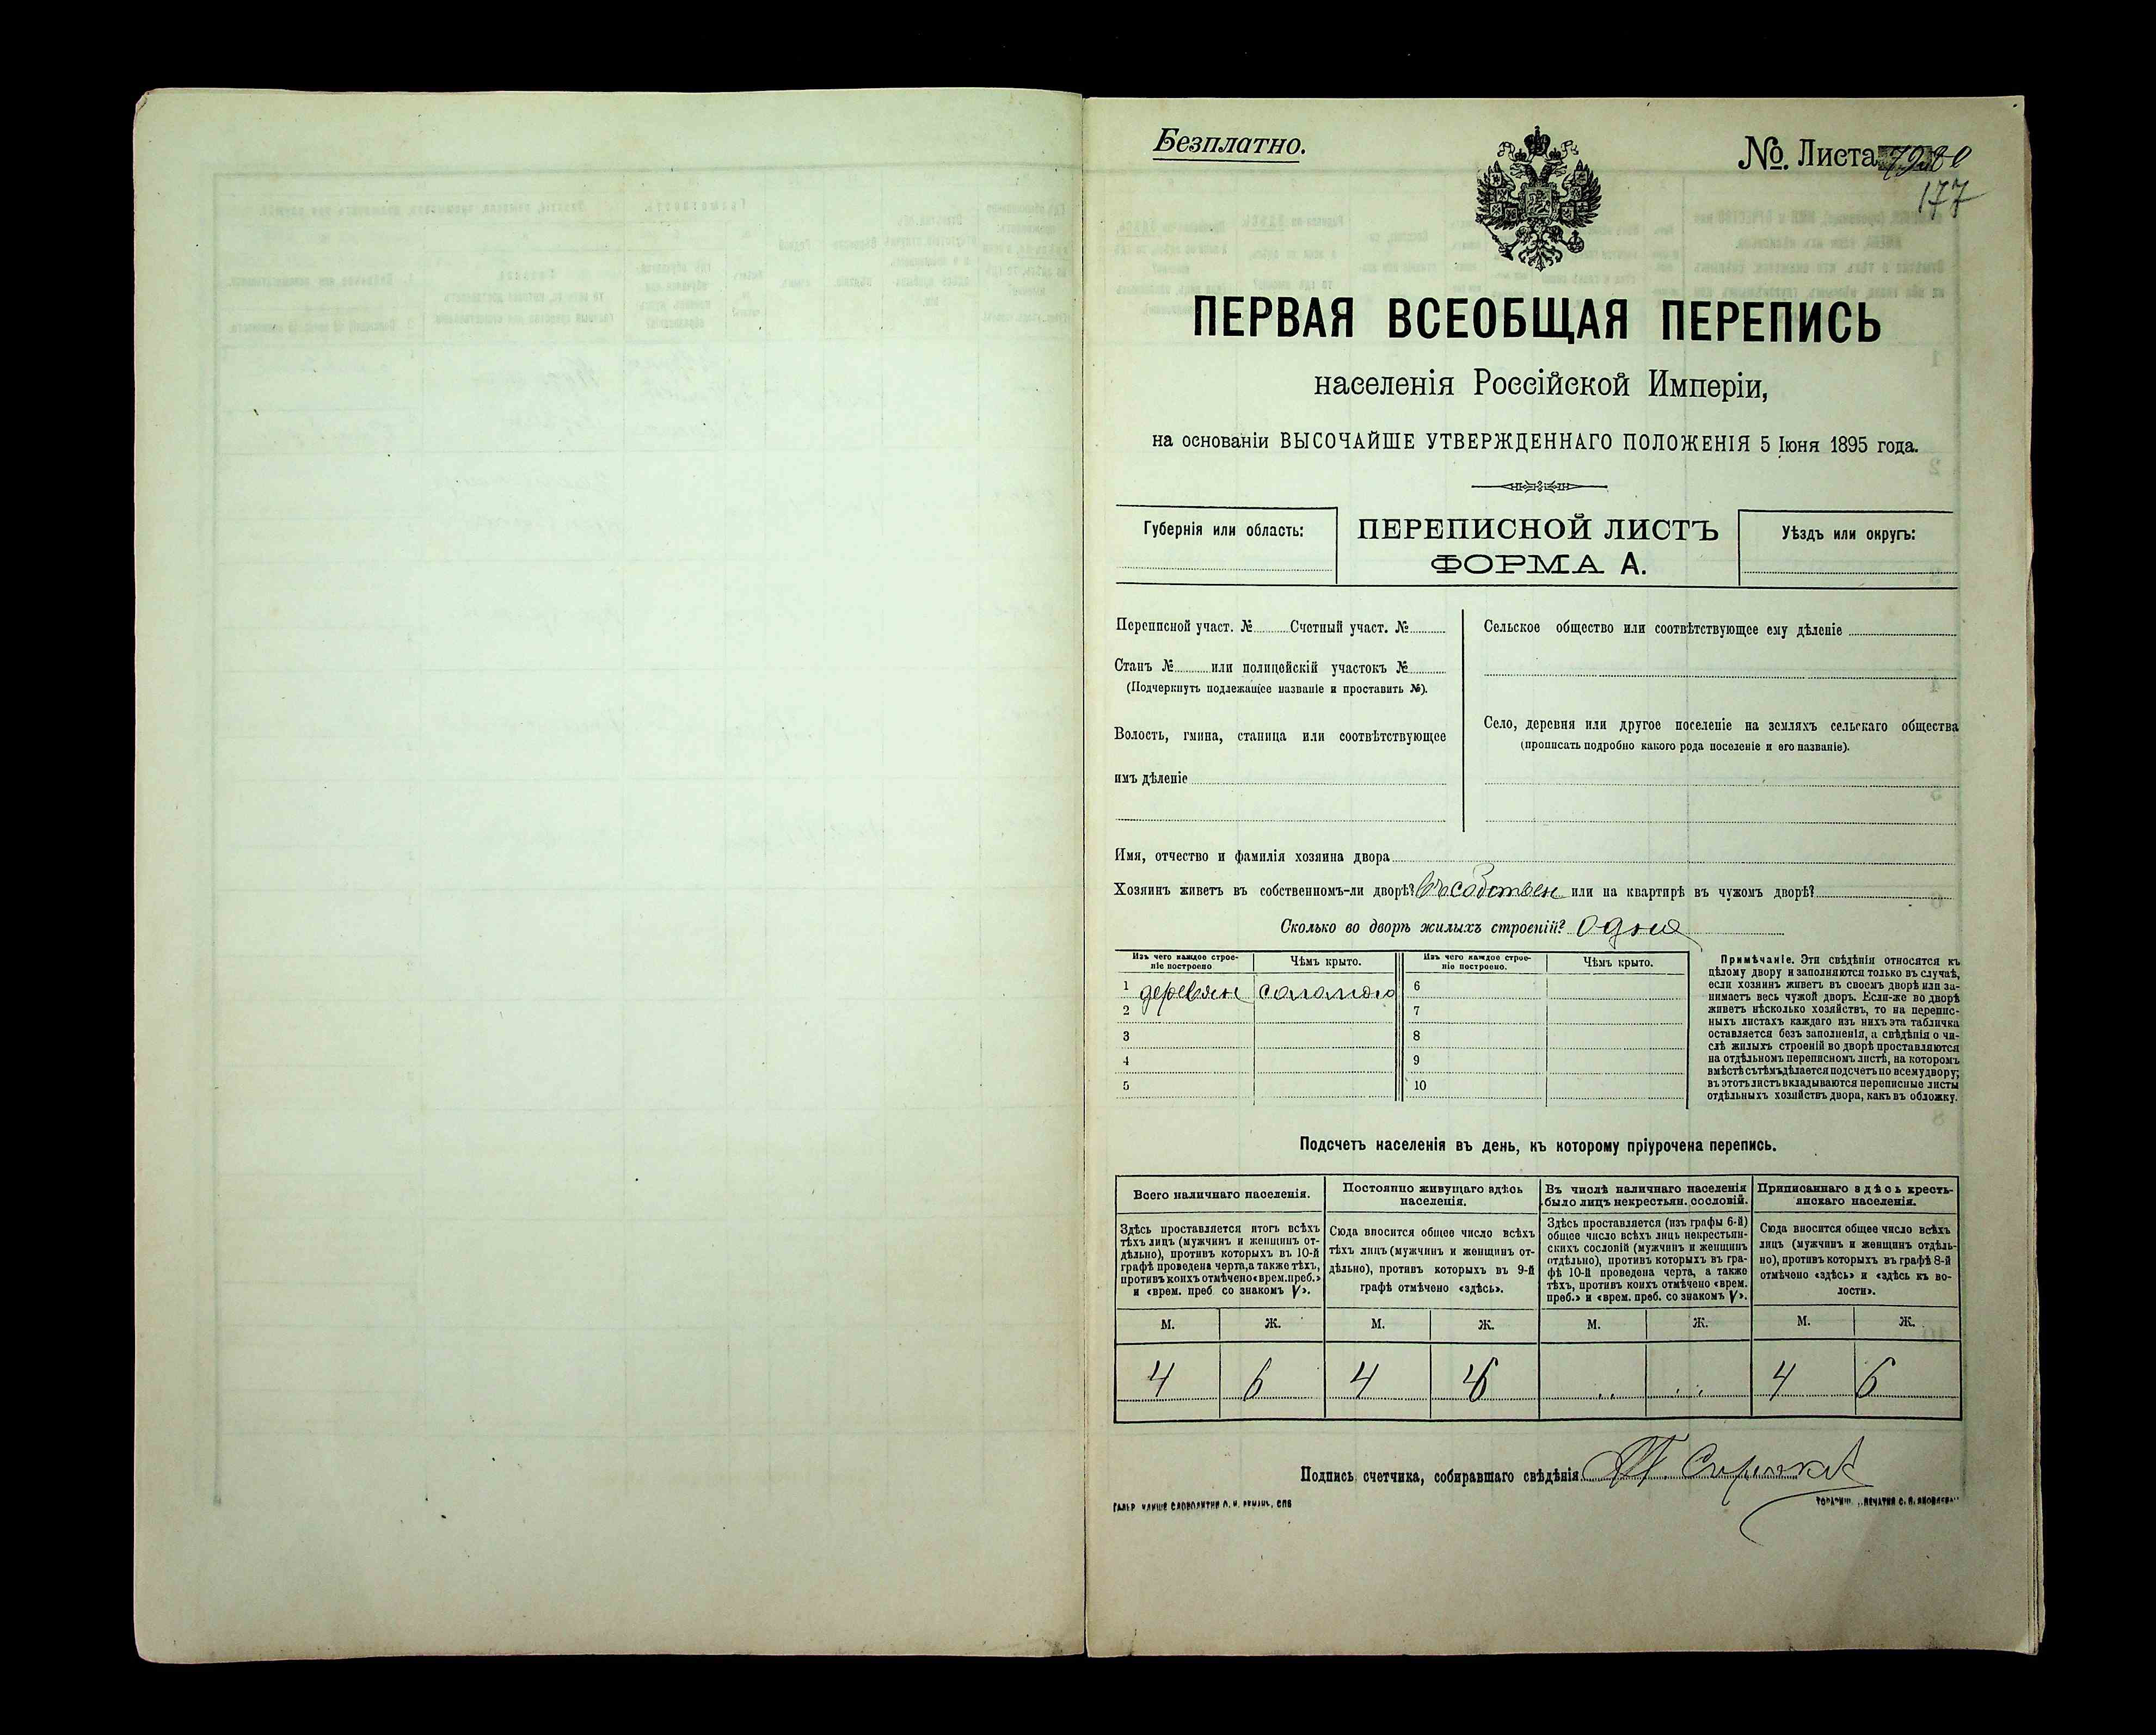 Безплатно.
№. Листа
177
ПЕРВАЯ ВСЕОБЩАЯ ПЕРЕПИСЬ
населенія Россійской Имперіи,
на основаніи ВЫСОЧАЙШЕ УТВЕРЖДЕННАГО ПОЛОЖЕНІЯ 5 Іюня 1895 года.
Губернія или область:
ПЕРЕПИСНОЙ ЛИСТЪ
ФОРМА А.
Уѣздъ или округъ:
Переписной участ. № Счетный участ. №
Станъ № или полицейскій участокъ №
(Подчеркнуть подлежащее названіе и проставить №).
Волость, гмина, станица или соотвѣтствующее
имъ дѣленіе
Сельское общество или соотвѣтствующее ему дѣленіе
Село, деревня или другое поселеніе на земляхъ сельскаго общества
(прописать подробно какого рода поселеніе и его названіе).
Имя, отчество и фамилія хозяина двора
Хозяинъ живетъ въ собственномъ-ли дворѣ? въ собствен или на квартирѣ въ чужомъ дворѣ?
Сколько во дворѣ жилыхъ строеній? одна
Изъ чего каждое строе-
ніе построено
Чѣмъ крыто.
Изъ чего каждое строе-
ніе построено.
Чѣмъ крыто.
1 деревян соломою 6
2 7
3 8
4 9
5 10
Примѣчаніе. Эти свѣдѣнія относятся къ
цѣлому двору и заполняются только въ случаѣ,
если хозяинъ живетъ въ своемъ дворѣ или за-
нимаетъ весь чужой дворъ. Если-же во дворѣ
живетъ нѣсколько хозяйствъ, то на перепис-
ныхъ листахъ каждаго изъ нихъ эта табличка
оставляется безъ заполненія, а свѣдѣнія о чи-
слѣ жилыхъ строеній во дворѣ проставляются
на отдѣльномъ переписномъ листѣ, на которомъ
вмѣстѣ съ тѣмъ дѣлается подсчетъ по всему двору;
въ этотъ листъ вкладываются переписные листы
отдѣльныхъ хозяйствъ двора, какъ въ обложку.
Подсчетъ населенія въ день, къ которому пріурочена перепись.
Всего наличнаго населенія.
Здѣсь проставляется итогъ всѣхъ
тѣхъ лицъ (мужчинъ и женщинъ от-
дѣльно), противъ которыхъ въ 10-й
графѣ проведена черта, а также тѣхъ,
противъ коихъ отмѣчено «врем. преб.»
и «врем. преб. со знакомъ V».
Постоянно живущаго здѣсь
населенія.
Сюда вносится общее число всѣхъ
тѣхъ лицъ (мужчинъ и женщинъ от-
дѣльно), противъ которыхъ въ 9-й
графѣ отмѣчено «здѣсь».
Въ числѣ наличнаго населенія
было лицъ некрестьян. сословій.
Здѣсь проставляется (изъ графы 6-й)
общее число всѣхъ лицъ некрестьян-
скихъ сословій (мужчинъ и женщинъ
отдѣльно), противъ которыхъ въ гра-
фѣ 10-й проведена черта, а также
тѣхъ, противъ коихъ отмѣчено «врем.
преб.» и «врем. преб. со знакомъ V».
Приписаннаго здѣсь кресть-
янскаго населенія.
Сюда вносится общее число всѣхъ
лицъ (мужчинъ и женщинъ отдѣль-
но), противъ которыхъ въ графѣ 8-й
отмѣчено «здѣсь» и «здѣсь къ во-
лости».
М. Ж. М. Ж. М. Ж. М. Ж.
4 6 4 6 „ „ 4 6
Подпись счетчика, собиравшаго свѣдѣнія